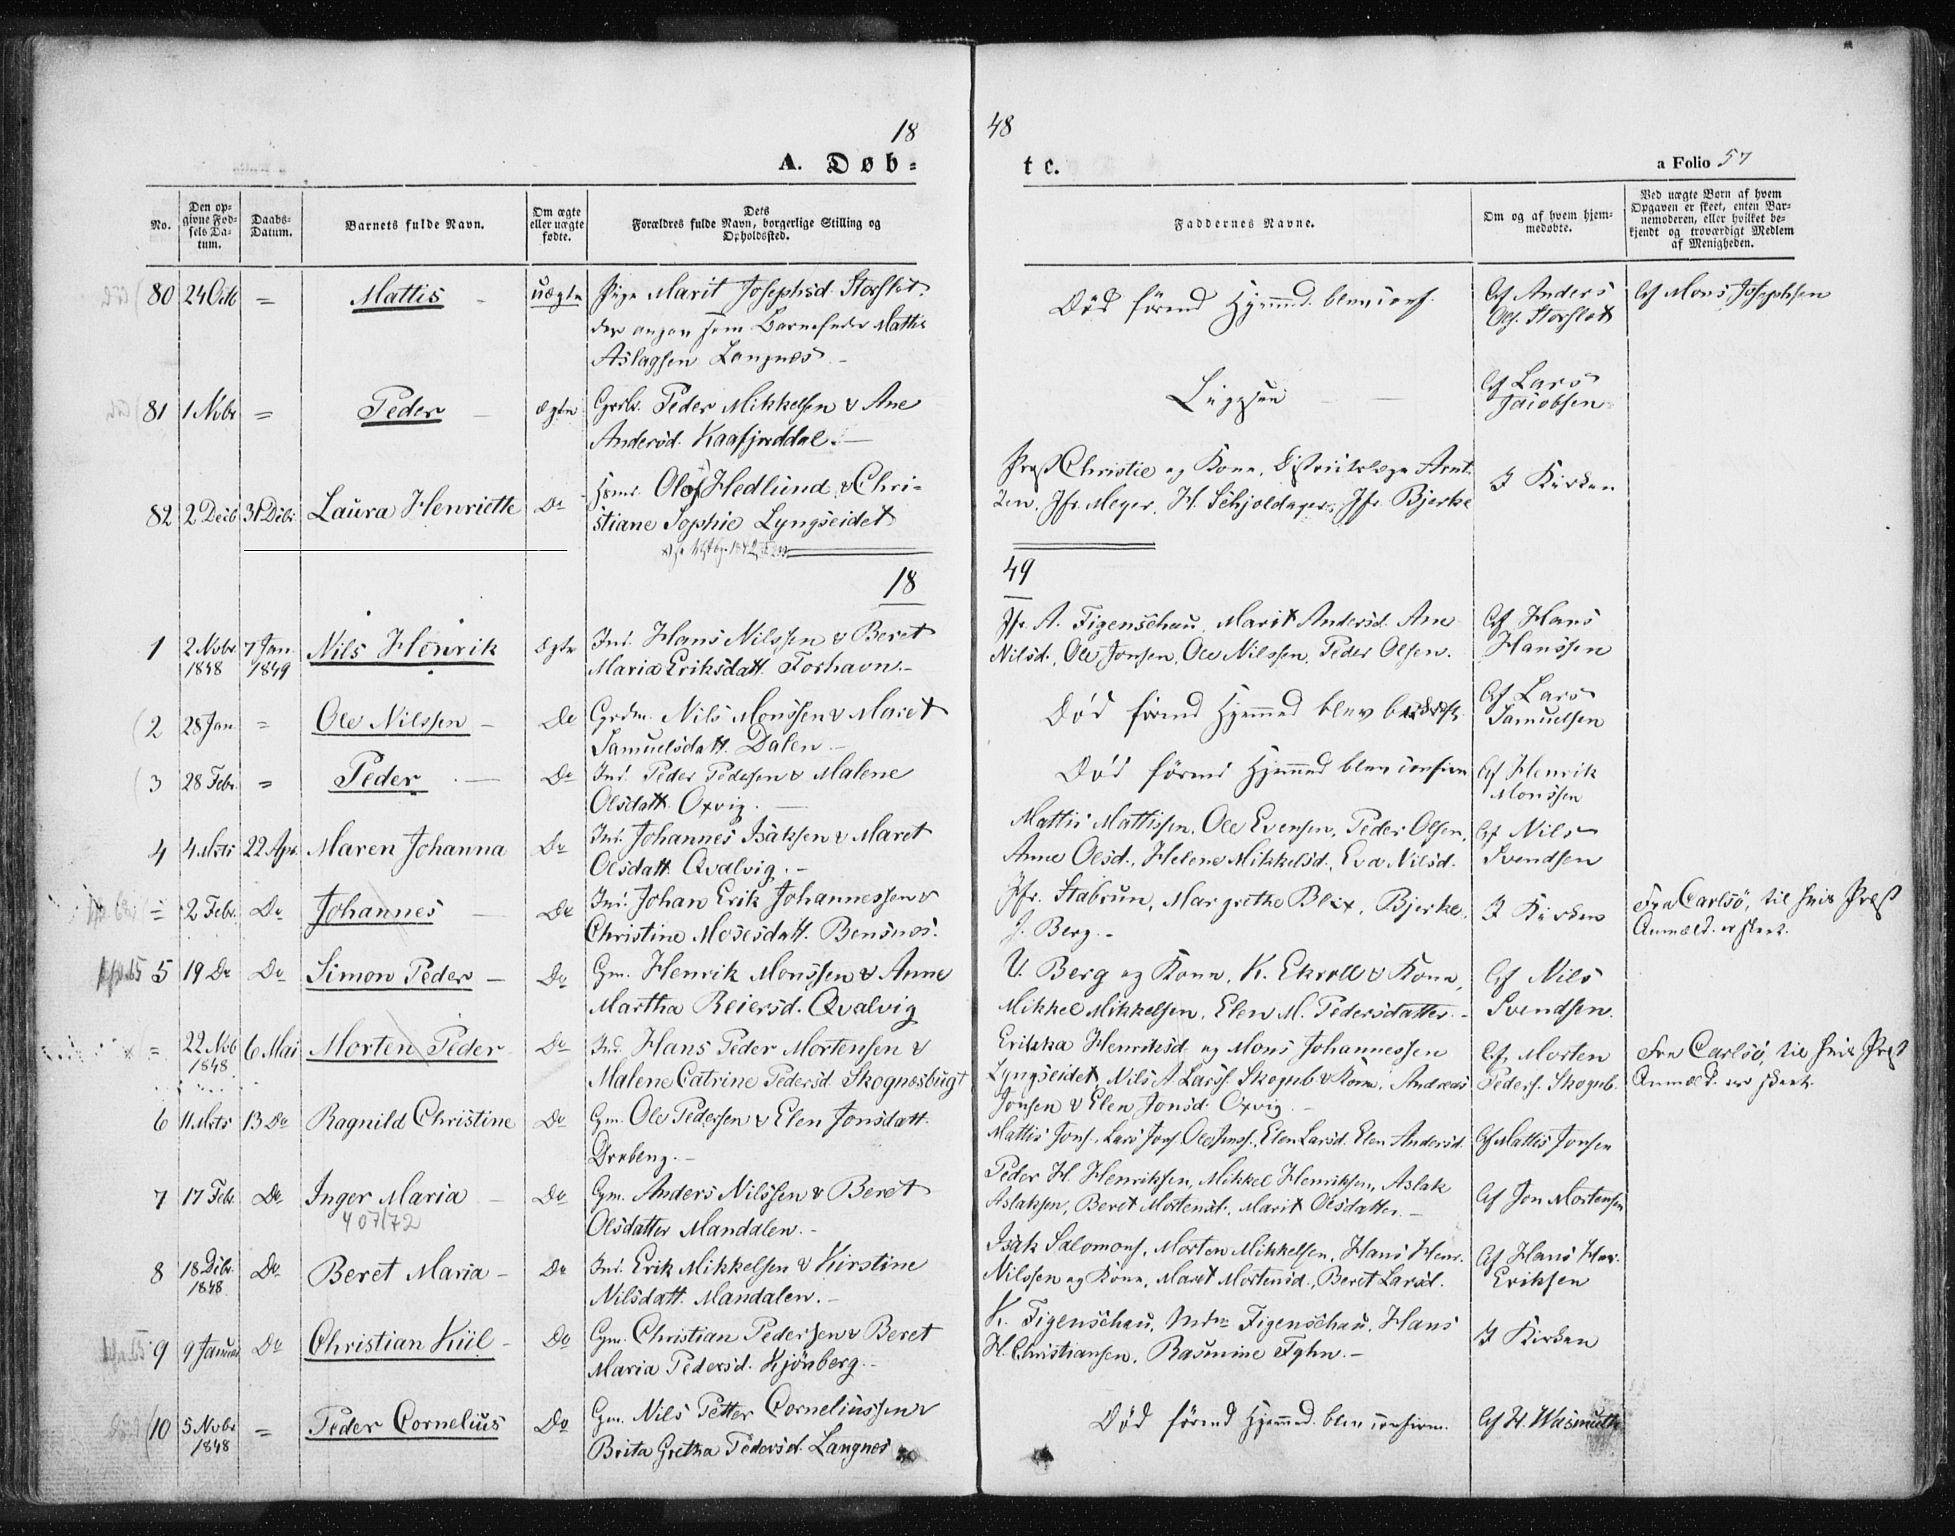 18 48
A. Døb= te. a Folio 57
No.
Den op-
givne Fød-
sels Da-
tum.
Daabs-
Datum.
Barnets fulde Navn.
Om ægte
eller uægte
fødte.
Dets
Forældres fulde Navn, borgerlige Stilling og
Opholdssted.
Faddernes Navne.
Om og af hvem hjem-
medøbte.
Ved uægte Born af hvem
Opgaven er skeet, enten Bar-
nemoderen, eller hvilket be-
kjendt og troværdigt Medlem
af Menigheden.
80 24 Octb = Mattis - uægte Pige Marit Josephsd. Storslet.
der angav som Barnefader Mattis
Aslagsen Langnes -
Död förend Hjemmed. blev conf.
Af Anders
Ols. Storslet
Af Mons Josephsen
81 1 Nvbr = Peder - ægte Grdb. Peder Mikkelsen & Ane
Andersd. Kaafjorddal. -
Ligesaa
Af Lars
Jacobsen
82 2 Decb 31 Decbr Laura Henriette Do Hsmd. Olof Hedlund & Chri-
stiane Sophie Lyngseidet
Præst Christie og Kone, Districtslæge Arnt-
zen, Jfr. Meyer, H. Schjoldager, Jfr. Bjerke
I Kirken
18 49
1 2 Nvbr 1848 7 Jan. 1849 Nils Henrik ægte Ind. Hans Nilssen & Beret
Maria Eriksdatt. Torhavn. -
Jfr. A. Figenschau, Marit Andersd. Ane
Nilsd., Ole Jonsen, Ole Nilssen, Peder Olsen.
Af Hans
Hanssen
2 28 Jan = Ole Nilssen - Do Grdm. Nils Monssen & Maret
Samuelsdatt. Dalen -
Död förend Hjemmed blev
Af Lars
Samuelsen
3 28 Febr. = Peder - Do Ind. Peder Pedersen & Malene
Olsdatt. Oxvig. -
Död förend Hjemmed blev confirm
Af Henrik
Monssen
4 4 Mrts 22 Apr. Maren Johanna Do Ind. Johannes Isaksen & Maret
Olsdatt. Qvalvig. -
Mattis Mattissen, Ole Evensen, Peder Olsen,
Anne Olsd., Helene Mikkelsd., Eva Nilsd.
Af Nils
Svendsen
= 2 Febr. Do Johannes - Do Ind. Johan Erik Johannessen &
Christine Mosesdatt. Bensnes.
Jfr. Stabrun, Margrethe Blix, Bjerke,
J. Berg. -
I Kirken
Fra Carlsö, til hvis Præst
Anmeld. er skeet.
5 19 Do Do Simon Peder - Do Gm. Henrik Monssen & Anne
Martha Reiersd. Qvalvig
U. Berg og Kone, K. Ekroll & Kone,
Mikkel Mikkelsen, Elen M. Pedersdatter. -
Af Nils
Svendsen.
= 22 Nvb 1848 6 Mai Morten Peder Do Ind. Hans Peder Mortensen &
Malene Catrine Pedersd. Skognesbugt
Erikka Henriksd. og Mons Johannessen
Lyngseidet, Nils A. Larss. Skognb. & Kone, Andreas
Jonsen & Elen Jonsd. Oxvig -
Af Morten
Peders. Skognb.
Fra Carlsö, til hvis Præst
Anmeld. er skeet.
6 11 Mrts 13 Do Ragnild Christine Do Gm. Ole Pedersen & Elen Jonsdatt.
Drabeng. -
Mattis Jons., Lars Jons., Ole Jonss., Elen Larsd. Elen Andersd.
Af Mattis Jonsen
7 17 Febr Do Inger Maria - Do Gm. Anders Nilssen & Beret
407/72
Olsdatter Manddalen. -
Peder H. Henriksen, Mikkel Henriksen, Aslak
Aslaksen, Beret Mortensd., Marit Olsdatter. -
Af Jon Mortensen
8 18 Dcbr. 1848 Do Beret Maria - Do Ind. Erik Mikkelsen & Kirstine
Nilsdatt. Mandalen. -
Isak Salomons., Morten Mikkelsen, Hans Henr.
Nilssen og Kone, Maret Mortensd., Beret Larsd.
Af Hans Hen.
Eriksen
9 9 Januar Do Christian Kiil - Do Gm. Christian Pedersen & Beret
Maria Pedersd. Kjönberg. -
K. Figenschau, Mdm Figenschau, Hans
H. Christiansen, Rasmine Fghn. -
I Kirken
10 5 Nvbr 1848 = Peder Cornelius Do Gm. Nils Petter Corneliussen &
Brita Gretha Pedersd. Langnes
Död förend Hjemmed. blev confirm.
Af H. Wasmuth